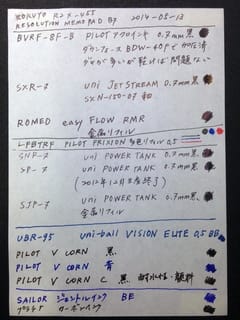 KOKUYO RZX-455
RESOLUTION MEMOPAD B7 2014-05-13
BVRF-8F-B PILOT アクロインキ 0.7mm 黒
BDW-40F
問題ない
SXR-7 uni JETSTREAM 0.7mm 黒
SXN-150-07
ROMED easy FLOW RMR
金属リフィル
LFBTRF PILOT FRIXION 多色リフィル 0.5
SNP-7 uni POWER TANK 0.7mm 黒
SP-7 uni POWER TANK 0.7mm 黒
(2012年12月生産終了)
SJP-7 uni POWER TANK 0.7mm 黒
金属リフィル
UBR-95 uni-ball VISION ELITE 0.5 BB
PILOT V CORN 黒
PILOT V CORN 青
PILOT V CORN C 黒 耐水性・顔料
SAILOR ジェントルインク BE
プラチナ カーボンインク